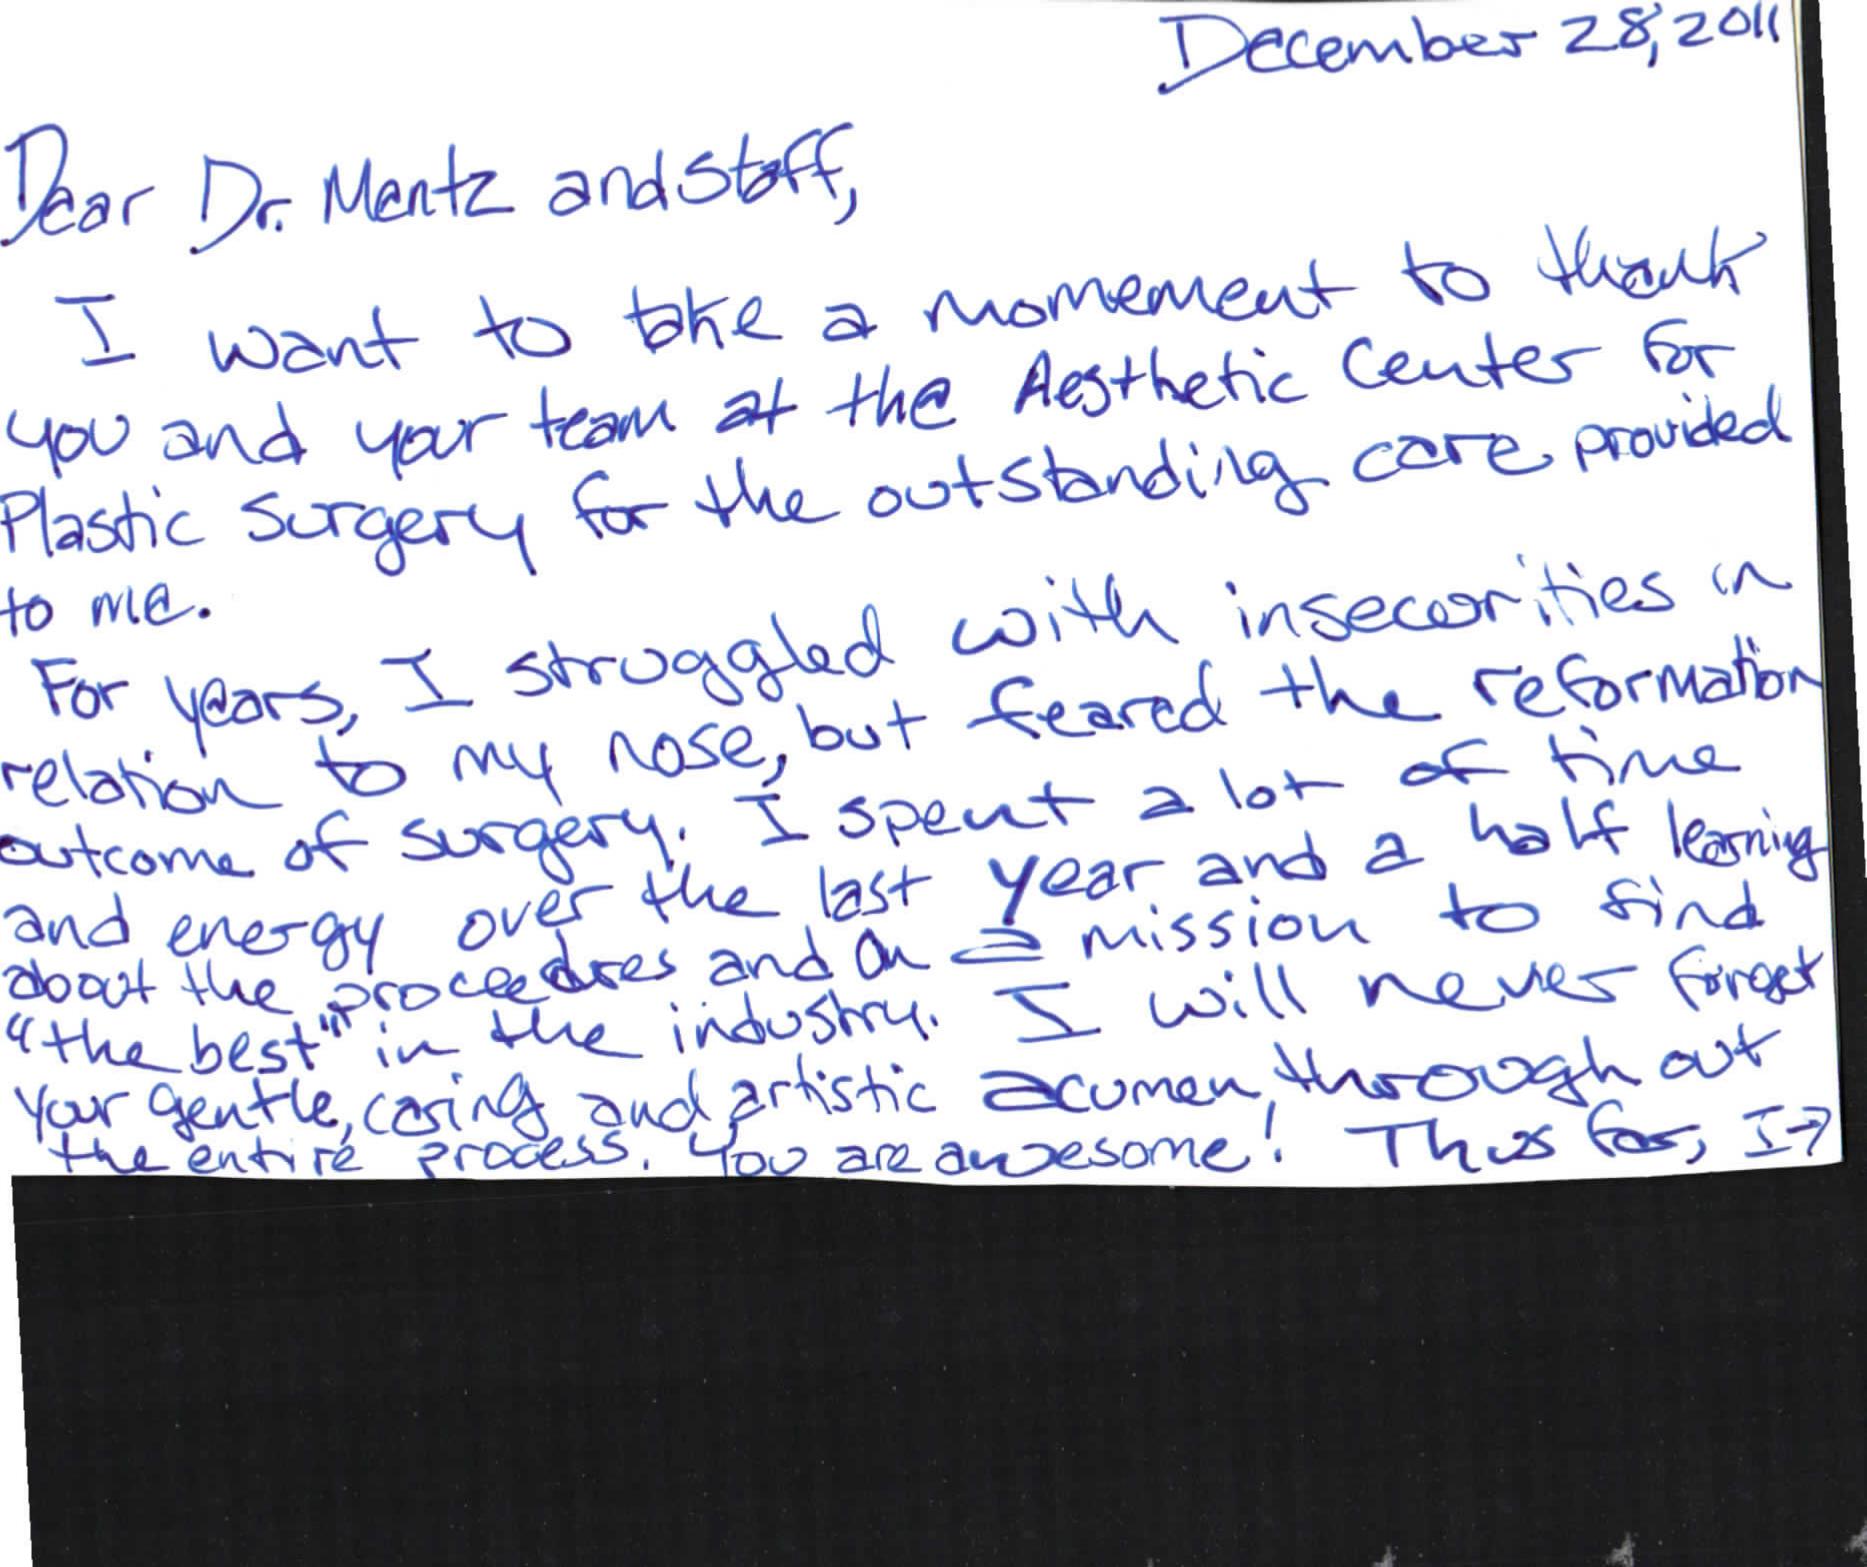 December 28, 2011
Dear Dr. Mentz and Staff,
I want to take a momement to thank
you and your team at the Aesthetic Center for
Plastic Surgery for the outstanding care provided
to me.
For years, I struggled with insecurities in
relation to my nose, but feared the reformation
outcome of surgery. I spent a lot of time
and energy over the last year and a half learning
about the proceedures and on a mission to find
"the best" in the industry. I will never forget
your gentle, caring and artistic acumen, through out
the entire process. You are awesome! Thus far, I →